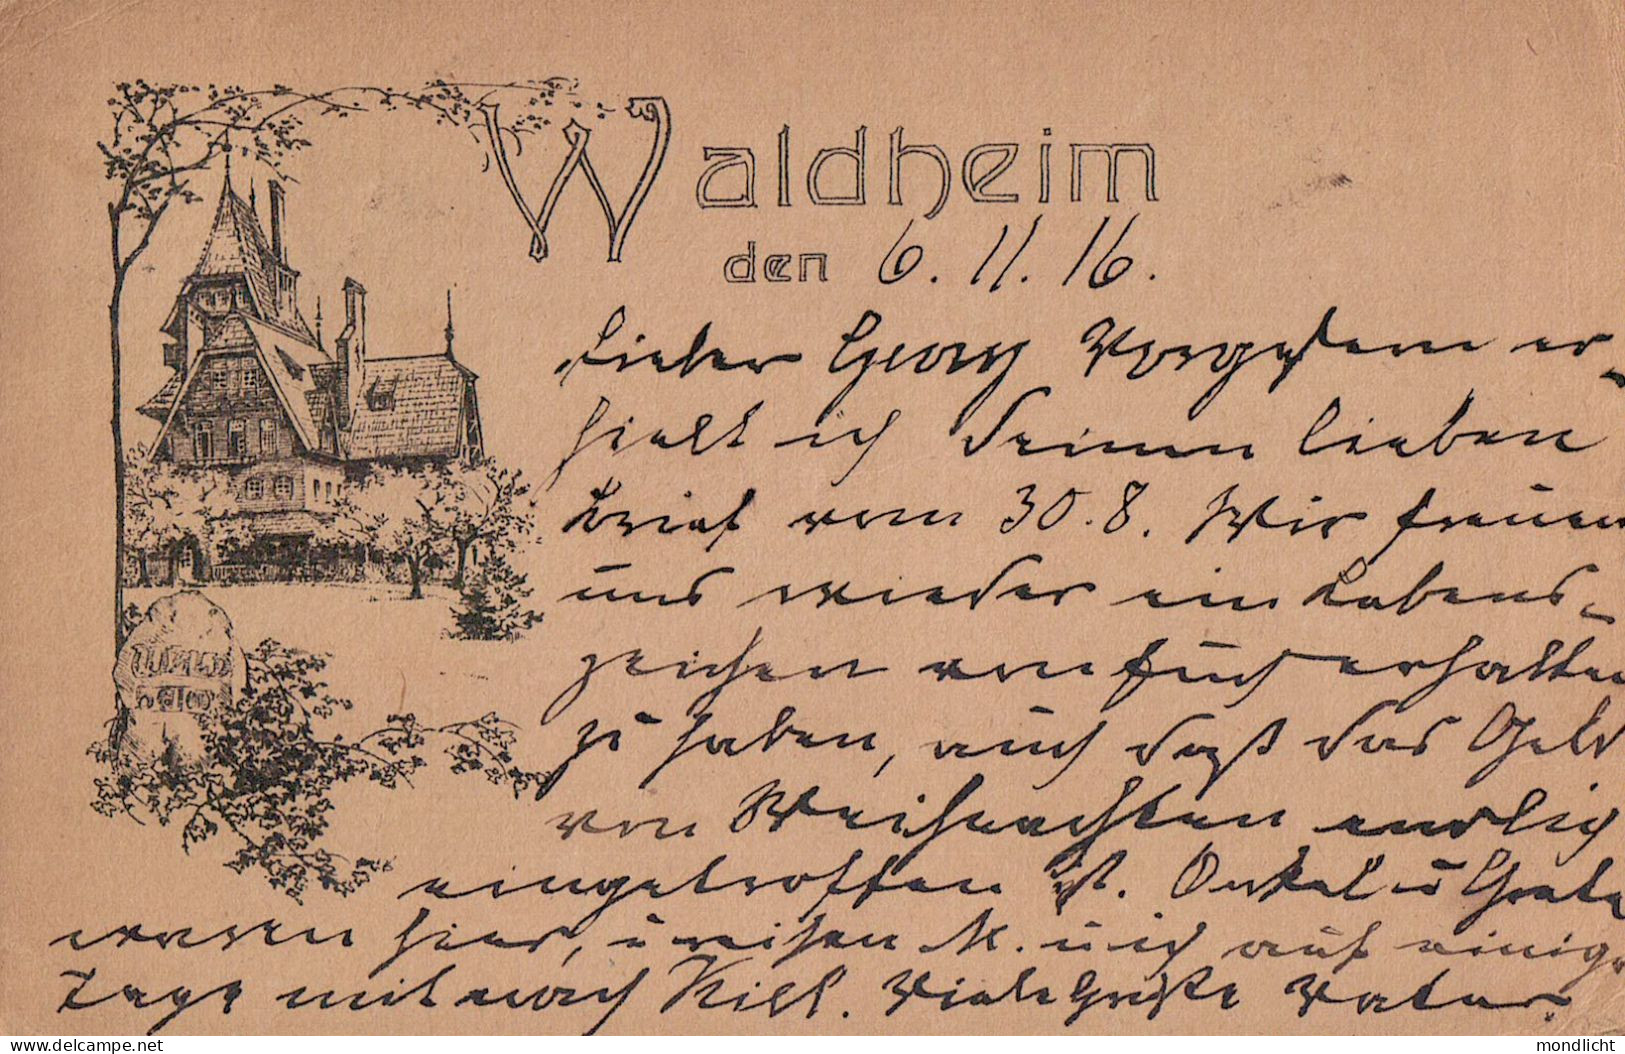 Waldheim
den 6. 11. 16.
Lieber Georg Vorgestern er-
hielt ich Deinen lieben
Brief vom 30.8. Wir freuen
uns wieder ein Lebens-
zeichen von Euch erhalten
zu haben, auch daß das Geld
von Weihnachten endlich
eingetroffen ist. Onkel u Grete
waren hier, u reisen M. u ich auf einige
Tage mit nach Kiel. Viele Grüße Vater.
mondlicht
delcampe.net